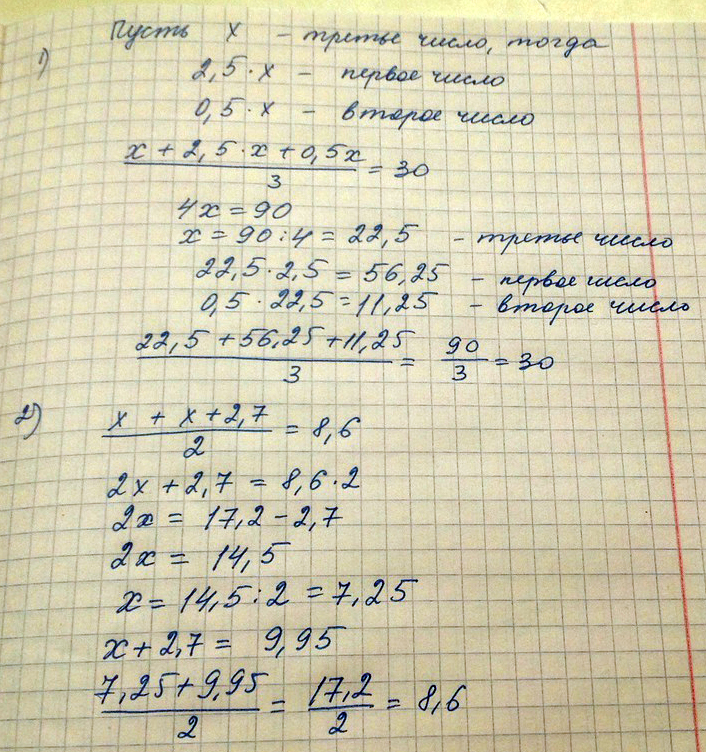 Пусть x – третье число, тогда
1) 2,5·x – первое число
0,5·x – второе число
x + 2,5·x + 0,5x / 3 = 30
4x = 90
x = 90:4 = 22,5 – третье число
22,5·2,5 = 56,25 – первое число
0,5·22,5 = 11,25 – второе число
22,5 + 56,25 + 11,25 / 3 = 90/3 = 30
2) x + x + 2,7 / 2 = 8,6
2x + 2,7 = 8,6·2
2x = 17,2 – 2,7
2x = 14,5
x = 14,5:2 = 7,25
x + 2,7 = 9,95
7,25 + 9,95 / 2 = 17,2/2 = 8,6